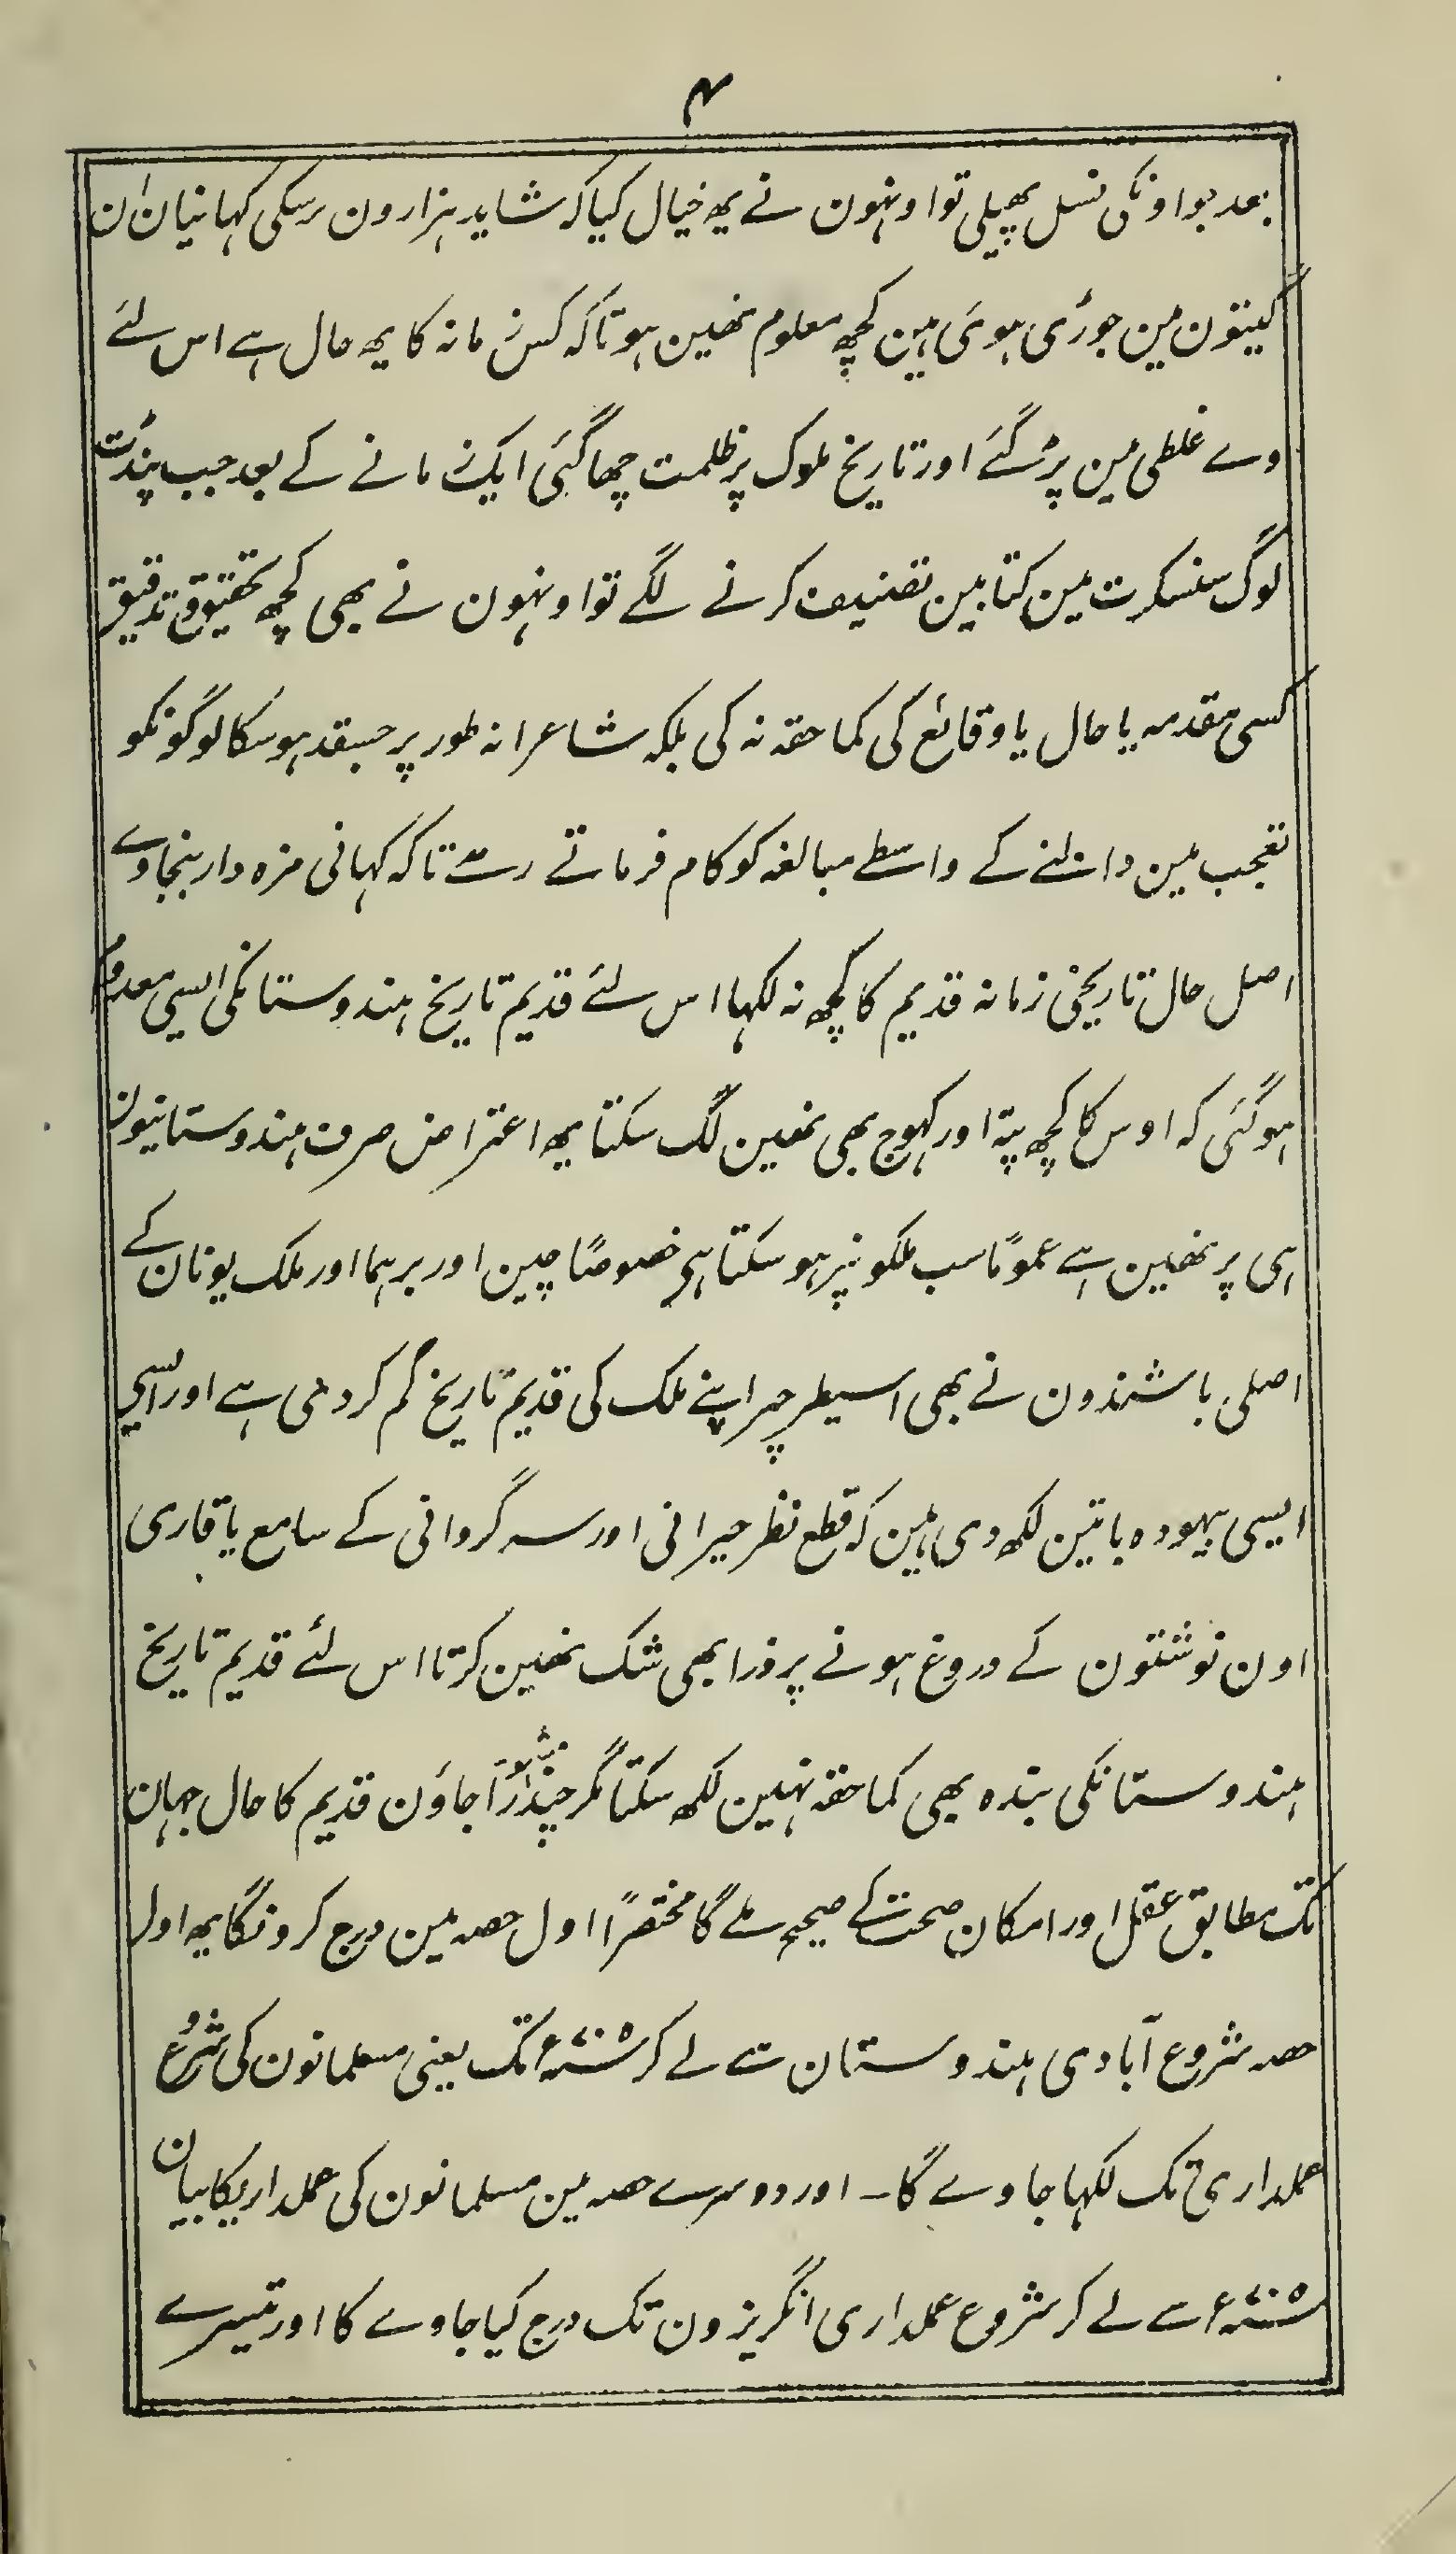 ۴
بعد جو اونکی نسل پھیلی تو اونہون نے یہ خیال کیا کہ شاید ہزارون برسکی کہانیان ان
گیتون مین جوڑی ہوئی ہین کچھ معلوم نھین ہوتا کہ کس زمانہ کا یہ حال ہے اس لئے
وے غلطی مین پڑ گئے اور تاریخ ملوک پر ظلمت چھا گئی ایک زمانے کے بعد جب پنڈت
لوگ سنسکرت مین کتابین تصنیف کرنے لگے تو اونہون نے بھی کچھ تحقیق و تدقیق
کسی مقدمہ یا حال یا وقائع کی کما حقہ نہ کی بلکہ شاعرانہ طور پر جسقدر ہو سکا لوگونکو
تعجب مین ڈالنے کے واسطے مبالغہ کو کام فرماتے رہے تاکہ کہانی مزہ دار بنجاوے
اصل حال تاریخی زمانہ قدیم کا کچھ نہ لکھا اس لئے قدیم تاریخ ہندوستانکی ایسی معدوم
ہو گئی کہ اوس کا کچھ پتہ اور کہوج بھی نھین لگ سکتا یہ اعتراض صرف ہندوستانیون
ہی پر نھین ہے عموماً سب ملکونپر ہو سکتا ہی خصوصاً چین اور برہما اور ملک یونان کے
اصلی باشندون نے بھی اسیطرحپر اپنے ملک کی قدیم تاریخ گم کر دی ہے اور ایسی
ایسی بیہودہ باتین لکھ دی ہین کہ قطع نظر حیرانی اور سرگردانی کے سامع یا قاری
اون نوشتون کے دروغ ہونے پر ذرا بھی شک نھین کرتا اس لئے قدیم تاریخ
ہندوستانکی بندہ بھی کما حقہ نہین لکھ سکتا مگر چند مشہور راجاؤن قدیم کا حال جہان
تک مطابق عقل اور امکان صحت کے صحیح ملے گا مختصراً اول حصہ مین درج کرونگا یہ اول
حصہ شروع آبادی ہندوستان سے لے کر سنہ ع تک یعنی مسلمانون کی شروع
عملداری تک لکہا جاوے گا ۔ اور دوسرے حصہ مین مسلمانون کی عملداریکا بیان
سنہ ع سے لے کر شروع عملداری انگریزون تک درج کیا جاوے گا اور تیسرے